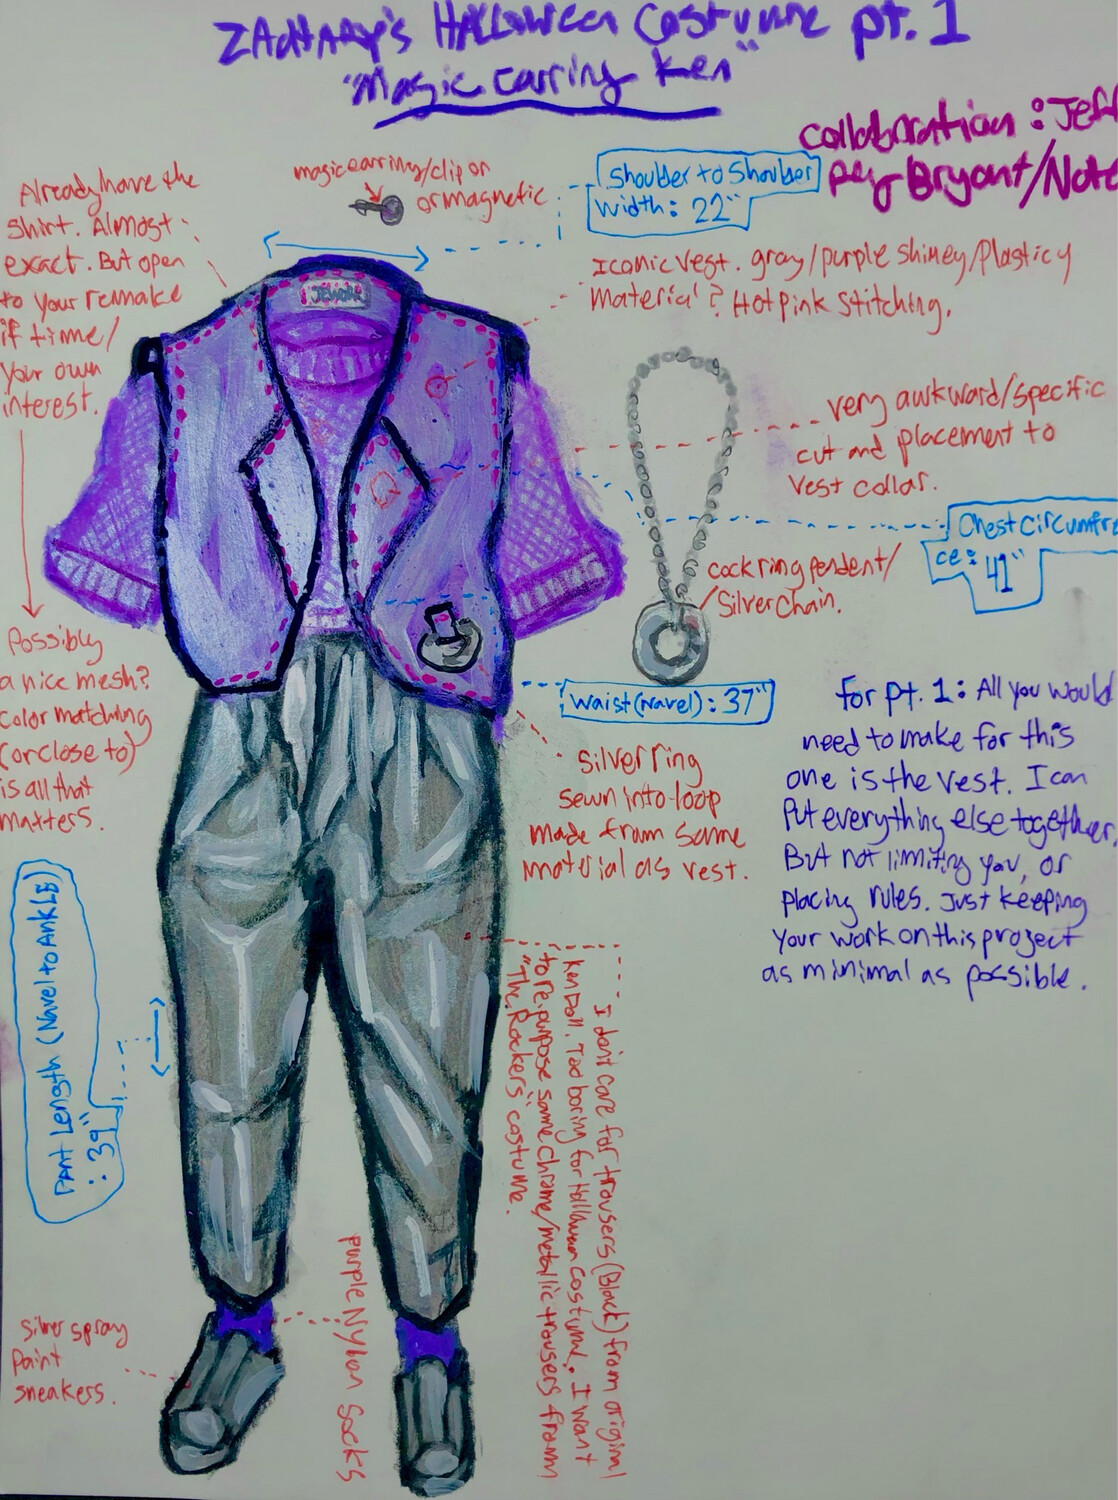 ZAcHARy's HAlloween Costume pt. 1
"Magic Earring Ken"
collaboration : Jeff
Bryant/Note
magic earring/clip on
or magnetic
Shoulder to Shoulder
Width: 22"
Already have the
shirt. Almost
exact. But open
to your remake
if time/
your own
interest.
Iconic vest. gray/purple shiney/plasticy
material? Hot pink stitching.
very awkward/specific
cut and placement to
vest collar.
Chest Circumfre
ce: 41"
cock ring pendent/
Silver Chain.
Possibly
a nice mesh?
color matching
(or close to)
is all that
matters.
Waist (Navel) : 37"
Silver ring
sewn into loop
made from same
material as vest.
for pt. 1: All you would
need to make for this
one is the vest. I can
put everything else together.
But not limiting you, or
placing rules. Just keeping
your work on this project
as minimal as possible.
Pant Length (Navel to Ankle)
: 39"
I don't care for trousers (Black) from original
Ken Doll. Too boring for Halloween costume. I want
to re.purpose same chrome/metallic trousers from
"The Rockers" costume.
purple Nylon socks
Silver spray
paint
sneakers.